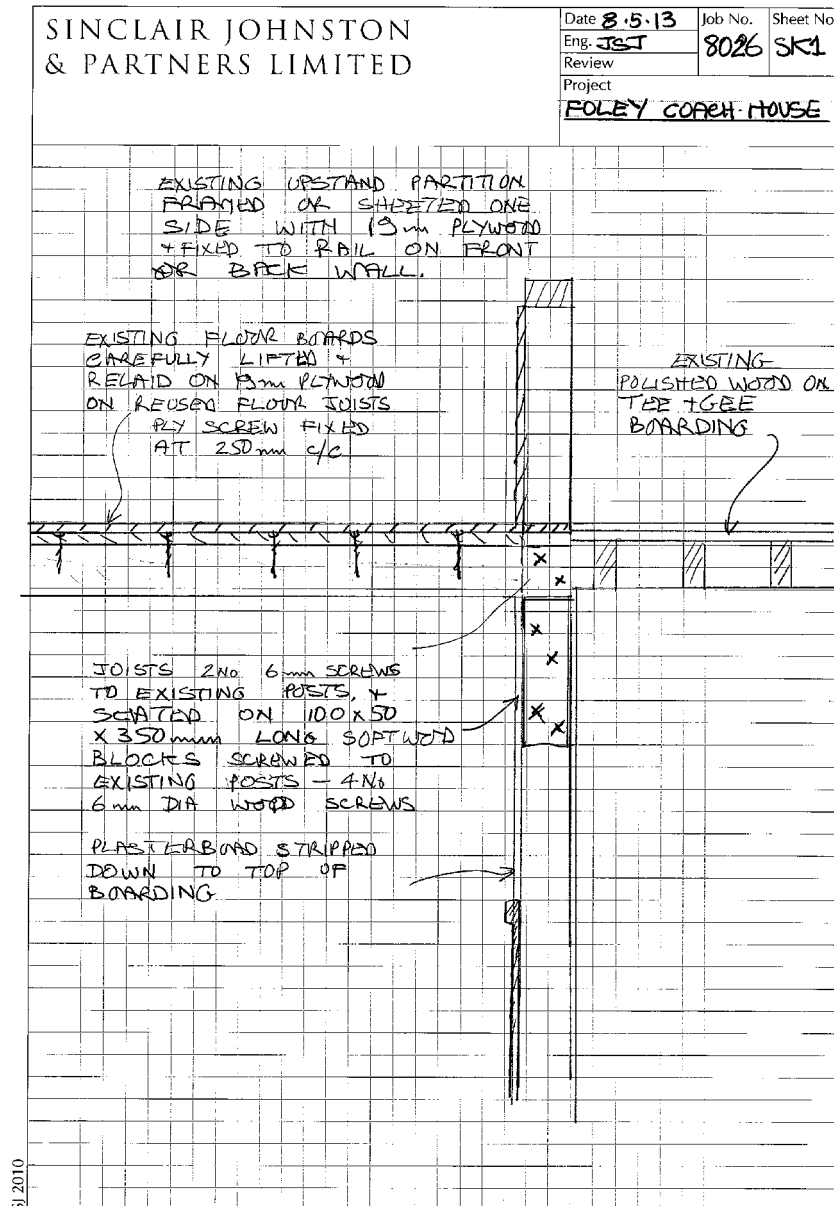 SINCLAIR JOHNSTON
& PARTNERS LIMITED
Date 8.5.13
Job No.
8026
Sheet No
SK1
Eng. JSJ
Review
Project
FOLEY COACH HOUSE
EXISTING UPSTAND PARTITION
FRAMED OR SHEETED ONE
SIDE WITH 19mm PLYWOOD
+ FIXED TO RAIL ON FRONT
OR BACK WALL.
EXISTING FLOOR BOARDS
CAREFULLY LIFTED +
RELAID ON 19mm PLYWOOD
ON REUSED FLOOR JOISTS
PLY SCREW FIXED
AT 250mm c/c
EXISTING
POLISHED WOOD ON
TEE + GEE
BOARDING
JOISTS 2No 6mm SCREWS
TO EXISTING POSTS, +
SEATED ON 100 x 50
x 350mm LONG SOFTWOOD
BLOCKS SCREWED TO
EXISTING POSTS - 4No
6mm DIA WOOD SCREWS
PLASTERBOARD STRIPPED
DOWN TO TOP OF
BOARDING
SJ 2010